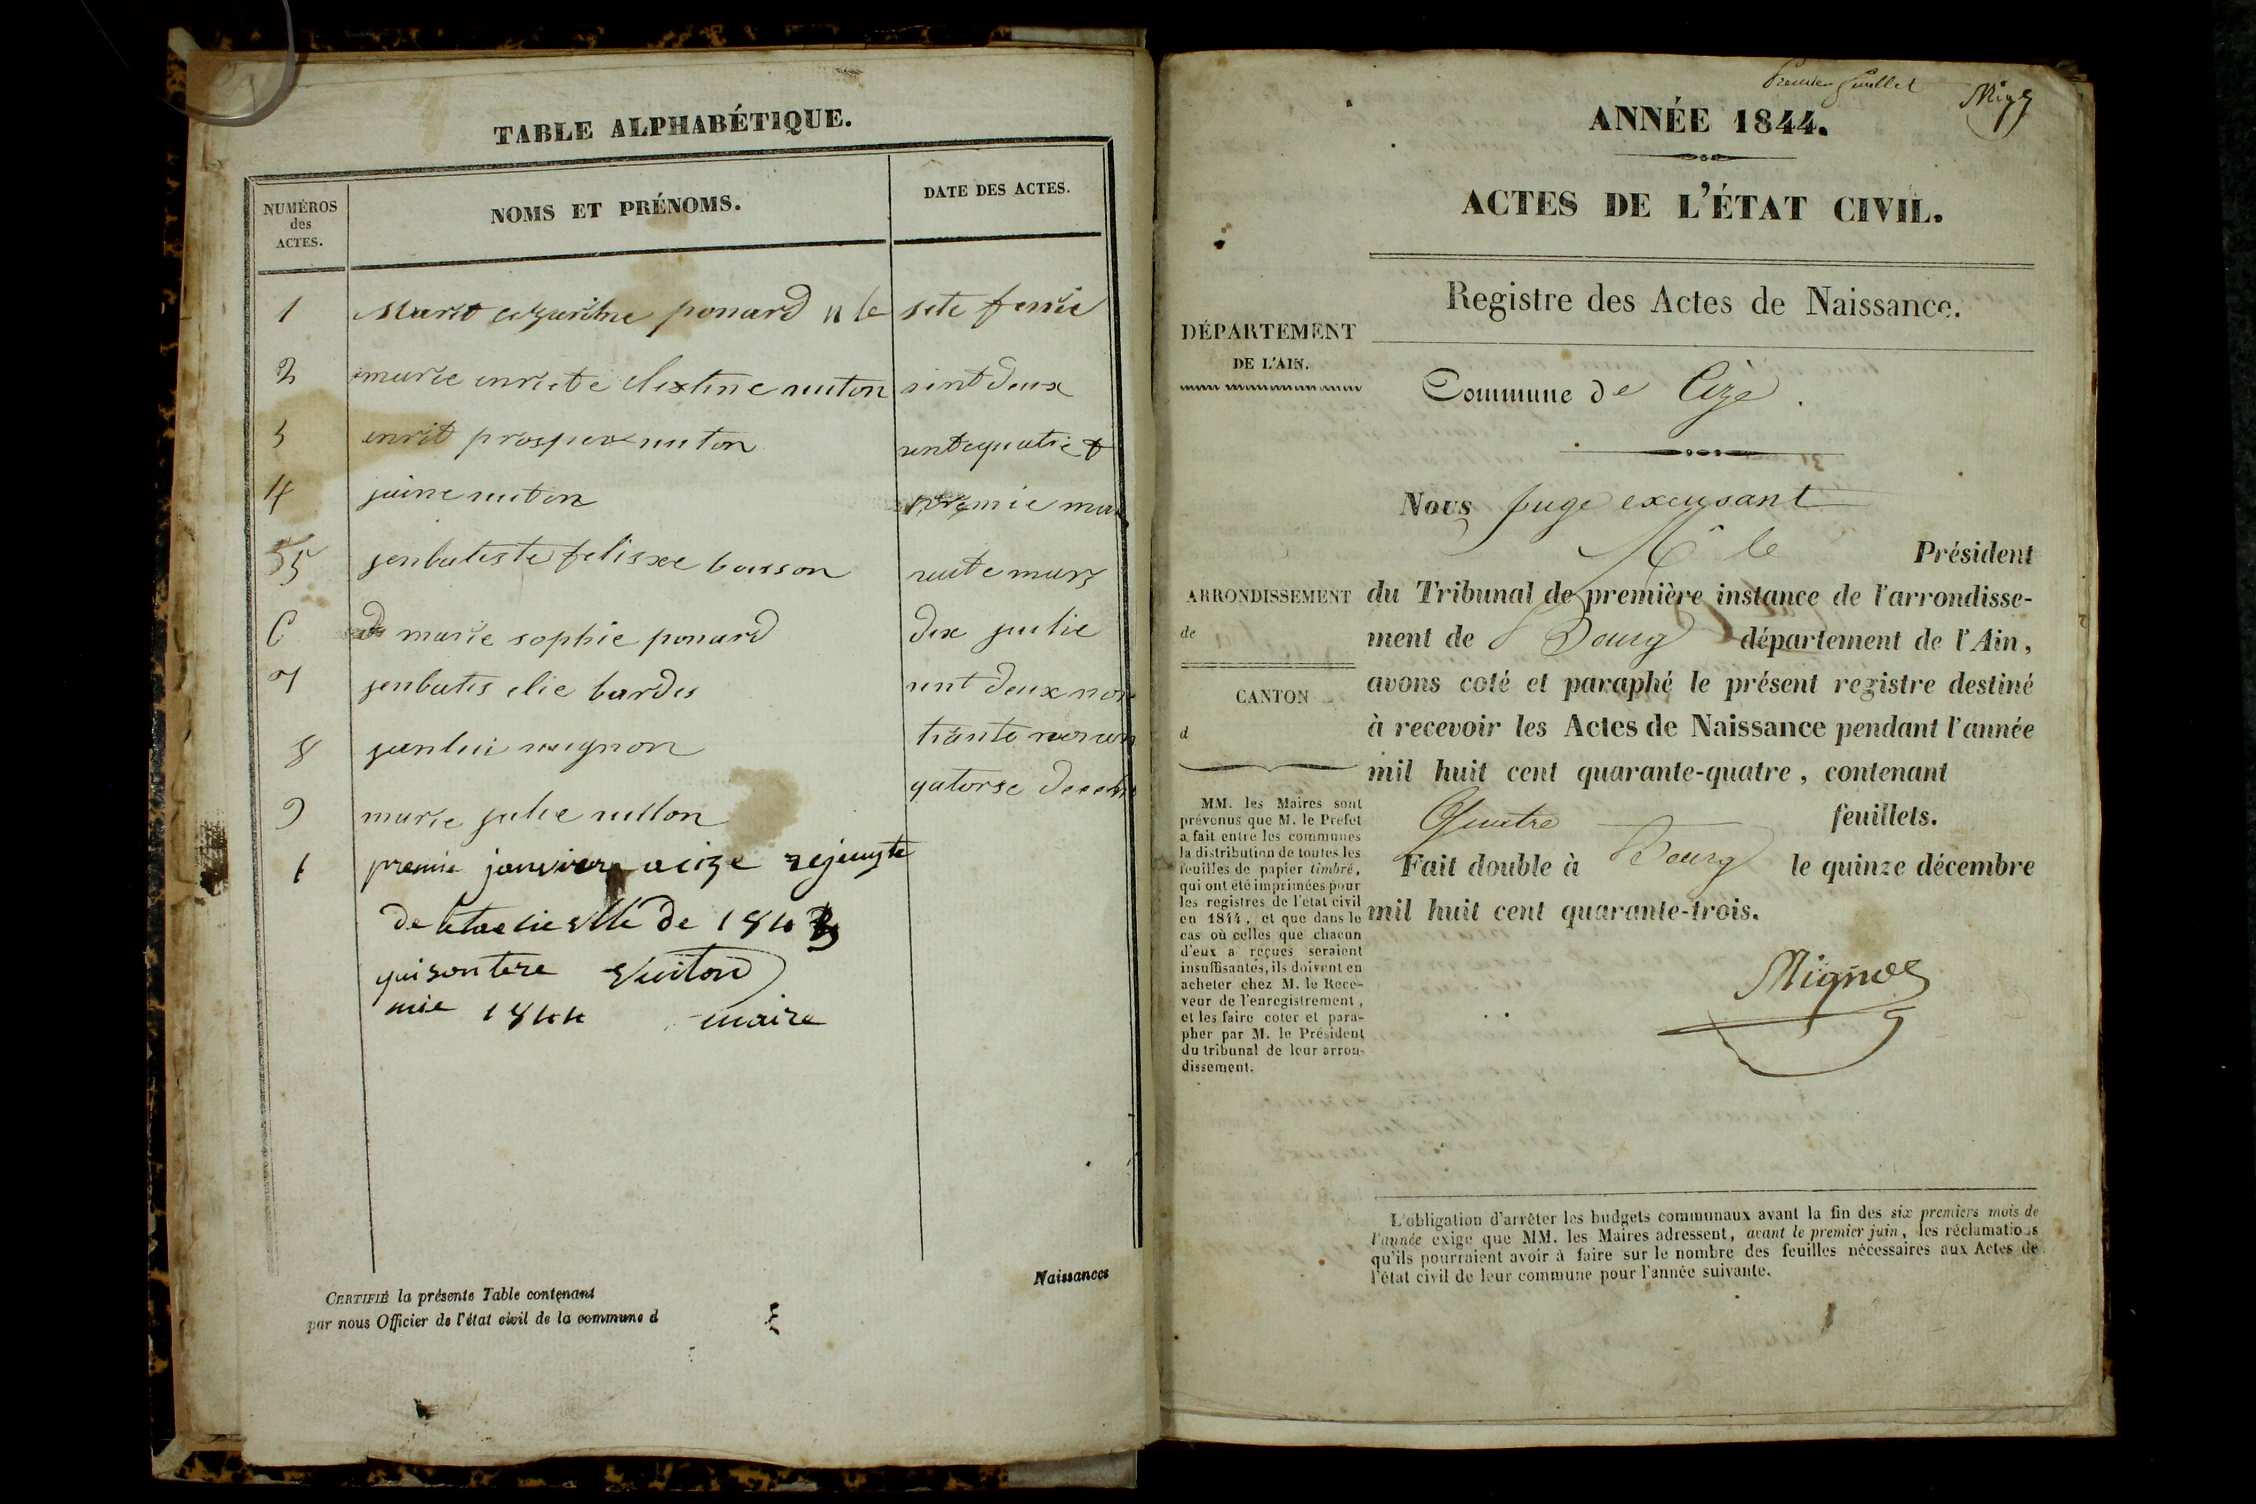 TABLE ALPHABÉTIQUE.
NUMÉROS des ACTES.
NOMS ET PRÉNOMS.
DATE DES ACTES.
1 ponard n le
2 marie enriete nuiton vint deux
3 enrit prosper nuiton
4 nuiton premie mar
5 jenbatiste felisxe buisson mars
6 marie sophie ponard dix julie
7 jenbatis elie bardes vint deux nov
8 janlui mignon trante
9 marie julie nuiton
1 premie janvier a cize
de de 1843
qui son Nuiton
mie 1844 maire
CERTIFIÉ la présente Table contenant
Naissances
par nous Officier de l'état civil de la commune d
Premier feuillet
ANNÉE 1844.
ACTES DE L'ÉTAT CIVIL.
Registre des Actes de Naissance.
DÉPARTEMENT
DE L'AIN.
Commune de Cize.
Nous Juge excusant
M. le Président
ARRONDISSEMENT
de
CANTON
d
du Tribunal de première instance de l'arrondisse-
ment de Bourg département de l'Ain,
avons coté et paraphé le présent registre destiné
à recevoir les Actes de Naissance pendant l'année
mil huit cent quarante-quatre, contenant
Quatre feuillets.
Fait double à Bourg le quinze décembre
mil huit cent quarante-trois.
MM. les Maires sont
prévenus que M. le Préfet
a fait entre les communes
la distribution de toutes les
feuilles de papier timbré,
qui ont été imprimées pour
les registres de l'état civil
en 1844, et que dans le
cas où celles que chacun
d'eux a reçues seraient
insuffisantes, ils doivent en
acheter chez M. le Rece-
veur de l'enregistrement,
et les faire coter et para-
pher par M. le Président
du tribunal de leur arron-
dissement.
L'obligation d'arrêter les budgets communaux avant la fin des six premiers mois de
l'année exige que MM. les Maires adressent, avant le premier juin, les réclamations
qu'ils pourraient avoir à faire sur le nombre des feuilles nécessaires aux Actes de
l'état civil de leur commune pour l'année suivante.